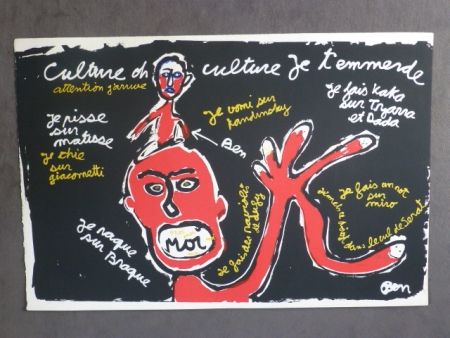 Culture oh culture Je t'emmerde
attention j'arrive
Je pisse
sur
matisse
Je chie
sur
giacometti
Je vomi sur
Kandinsky
Je fais kaka
sur Tzara
et Dada
Ben
Je raque
sur Braque
Moi
Je fais des
Je fais un rot
sur
miro
dans le cul de Serat
Ben